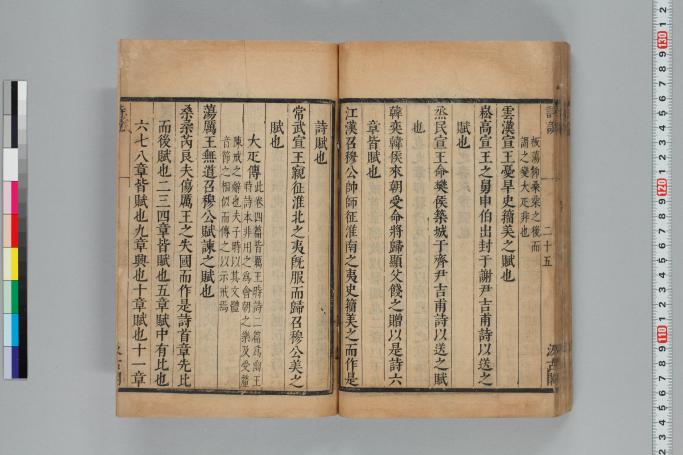 板蕩抑桑柔之後而
謂之變大疋非也
二十五
雲漢宣王憂旱史籀美之賦也
崧高宣王之舅申伯出封于謝尹吉甫詩以送之
賦也
烝民宣王命樊侯築城于齊尹吉甫詩以送之賦
也
韓奕韓侯來朝受命將歸顯父餞之贈以是詩六
章皆賦也
江漢召穆公帥師征淮南之夷史籀美之而作是
詩賦也
常武宣王親征淮北之夷旣服而歸召穆公美之
賦也
大疋傳
此卷四篇皆厲王時詩
二篇爲
王
時詩本非用之爲會朝之樂及受釐
陳戒之辭也夫子時以其文體
音節之相似而傳之以示戒焉
蕩厲王無道召穆公賦諫之賦也
桑柔芮良夫傷厲王之失國而作是詩首章先比
而後賦也二三四章皆賦也五章賦中有比也
六七八章皆賦也九章興也十章賦也十一章
汲古閣
130
120
110